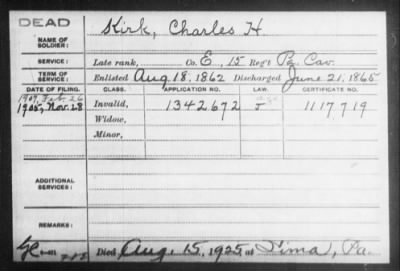 DEAD
NAME OF SOLDIER: Kirk, Charles H
SERVICE: Late rank, Co. E, 15 Reg't Pa. Cav.
TERM OF SERVICE: Enlisted Aug. 18, 1862 Discharged June 21, 1865
DATE OF FILING. CLASS. APPLICATION NO. LAW. CERTIFICATE NO.
1907, Feb. 26
1905, Nov. 28 Invalid, 1342672 J 1117719
Widow,
Minor,
ADDITIONAL SERVICES:
REMARKS:
Died Aug. 15, 1925, at Lima, Pa.